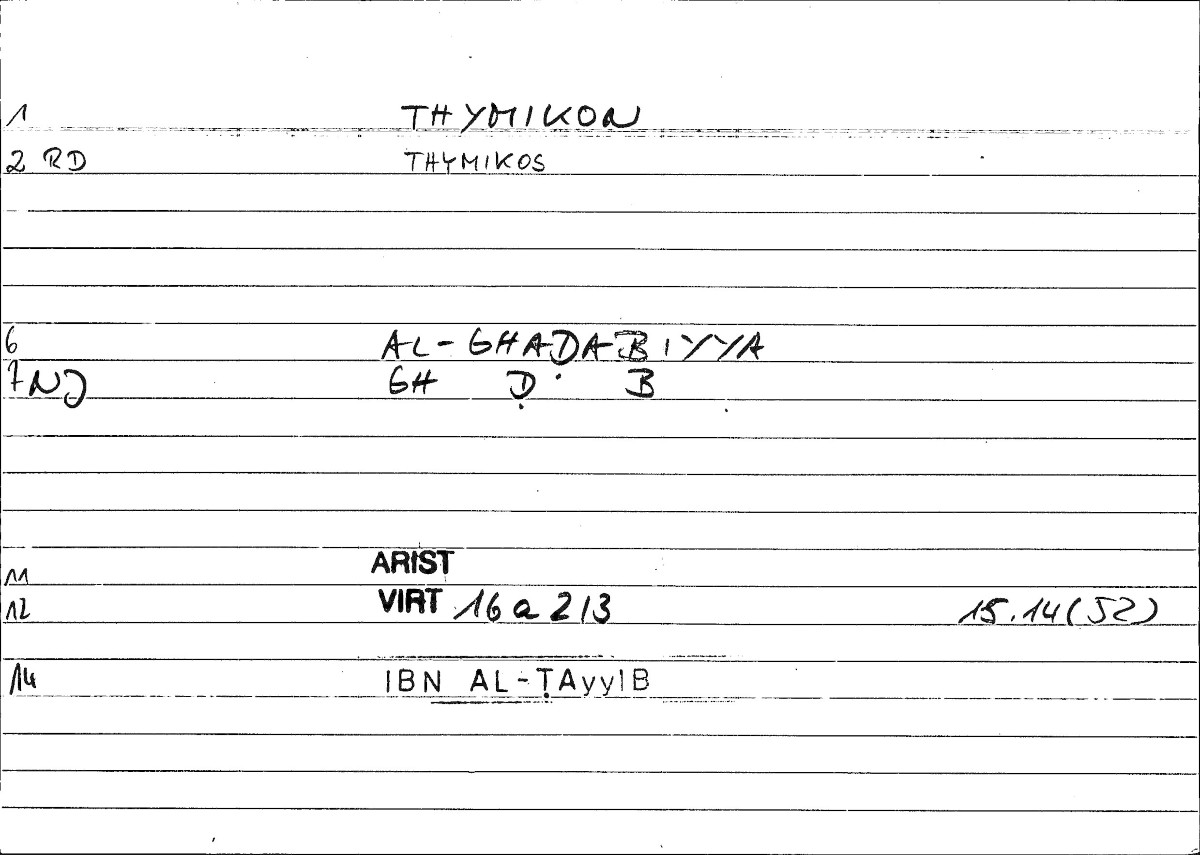 1 THYMIKON
2 RD THYMIKOS
6 AL-GHADABIYYA
7 NJ GH Ḍ B
11 ARIST
12 VIRT 16 a 2/3 15.14(52)
14 IBN AL-ṬAyyIB